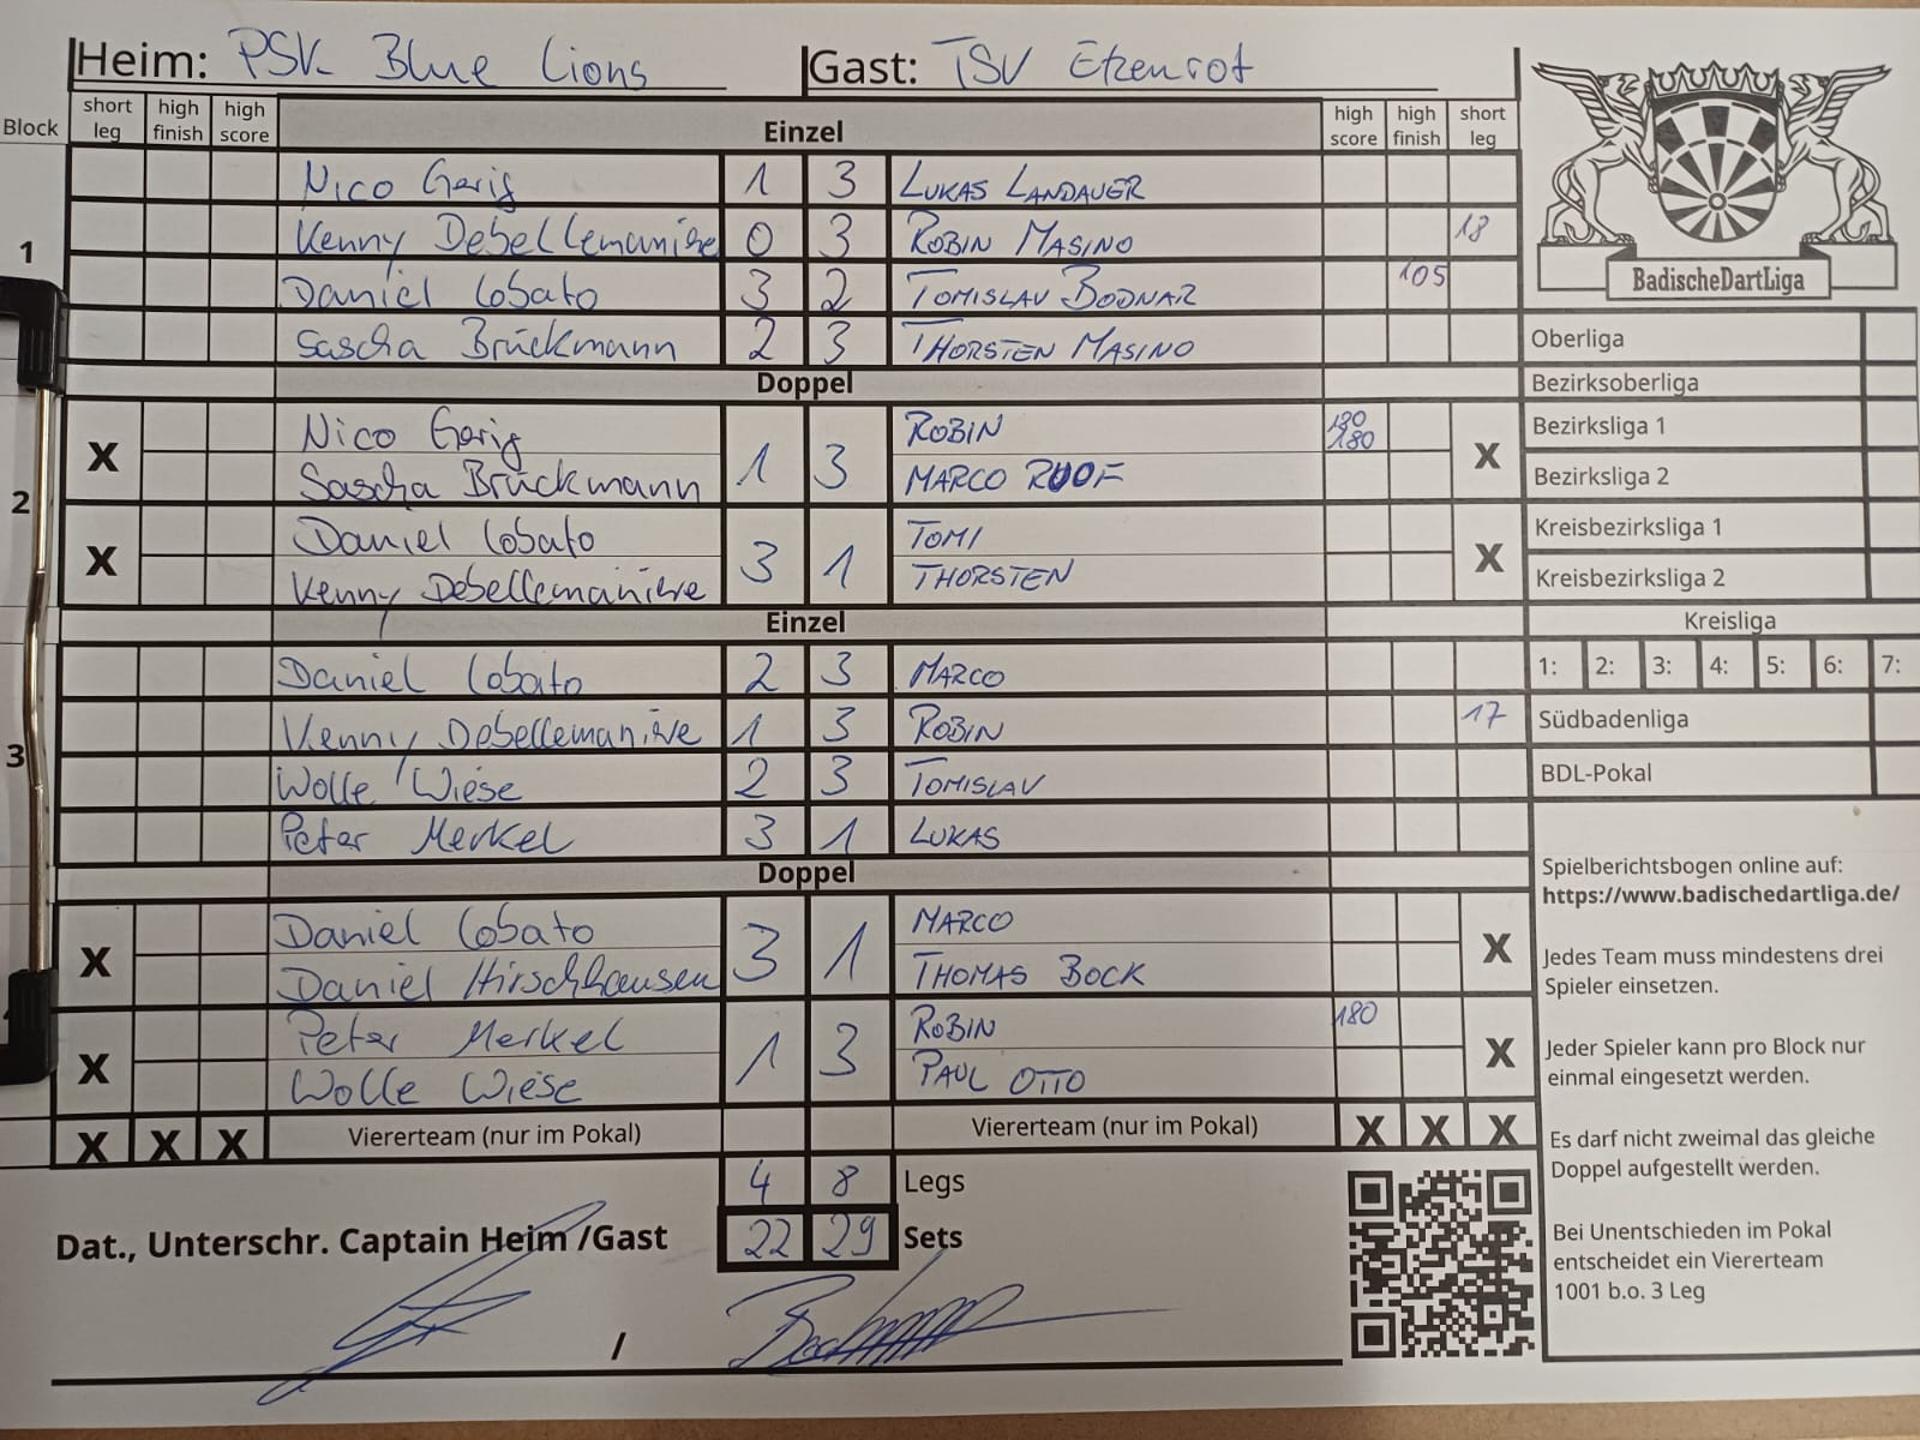 Heim: PSK Blue Lions Gast: TSV Etzenrot
Block short leg high finish high score Einzel high score high finish short leg
1
Nico Gerig 1 3 LUKAS LANDAUER
Kenny Debellemanière 0 3 ROBIN MASINO 18
Daniel Lobato 3 2 TOMISLAV BODNAR 105
Sascha Brückmann 2 3 THORSTEN MASINO
Doppel
2
X Nico Gerig 1 3 ROBIN 180 180 X
Sascha Brückmann MARCO RUOF
X Daniel Lobato 3 1 TOMI X
Kenny Debellemanière THORSTEN
Einzel
3
Daniel Lobato 2 3 MARCO
Kenny Debellemanière 1 3 ROBIN 17
Wolle Wiese 2 3 TOMISLAV
Peter Merkel 3 1 LUKAS
Doppel
X Daniel Lobato 3 1 MARCO X
Daniel Hirschhausen THOMAS BOCK
X Peter Merkel 1 3 ROBIN 180 X
Wolle Wiese PAUL OTTO
X X X Viererteam (nur im Pokal) Viererteam (nur im Pokal) X X X
4 8 Legs
Dat., Unterschr. Captain Heim /Gast 22 29 Sets
/
BadischeDartLiga
Oberliga
Bezirksoberliga
Bezirksliga 1
Bezirksliga 2
Kreisbezirksliga 1
Kreisbezirksliga 2
Kreisliga
1: 2: 3: 4: 5: 6: 7:
Südbadenliga
BDL-Pokal
Spielberichtsbogen online auf:
https://www.badischedartliga.de/
Jedes Team muss mindestens drei
Spieler einsetzen.
Jeder Spieler kann pro Block nur
einmal eingesetzt werden.
Es darf nicht zweimal das gleiche
Doppel aufgestellt werden.
Bei Unentschieden im Pokal
entscheidet ein Viererteam
1001 b.o. 3 Leg